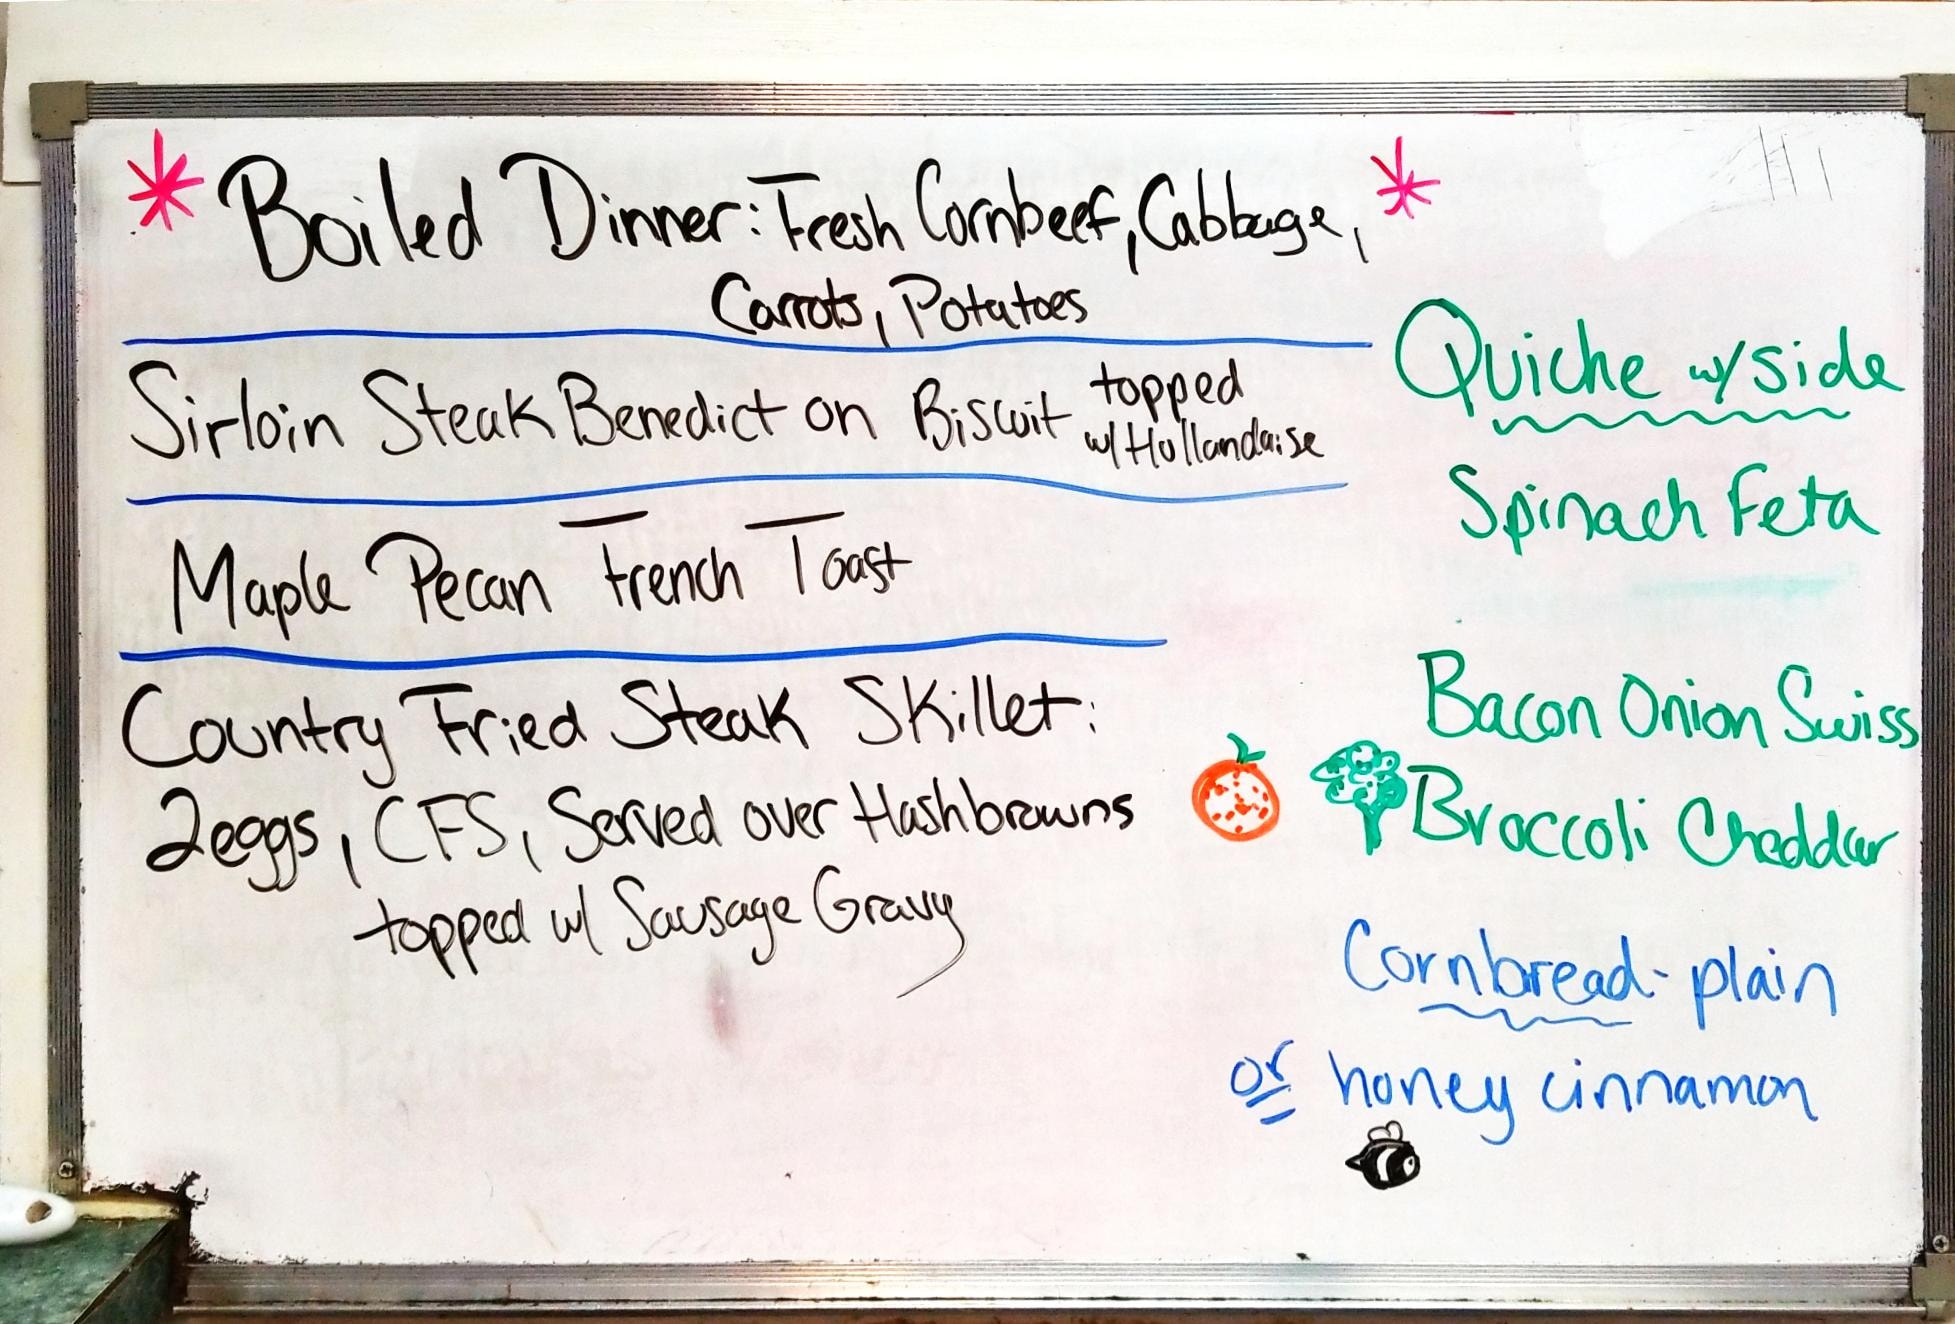 Boiled Dinner: Fresh Cornbeef, Cabbage,
Carrots, Potatoes
Sirloin Steak Benedict on Biscuit topped
w/ Hollandaise
Maple Pecan French Toast
Country Fried Steak Skillet:
2eggs, CFS, Served over Hashbrowns
topped w/ Sausage Gravy
Quiche w/ side
Spinach Feta
Bacon Onion Swiss
Broccoli Cheddar
Cornbread - plain
or honey cinnamon